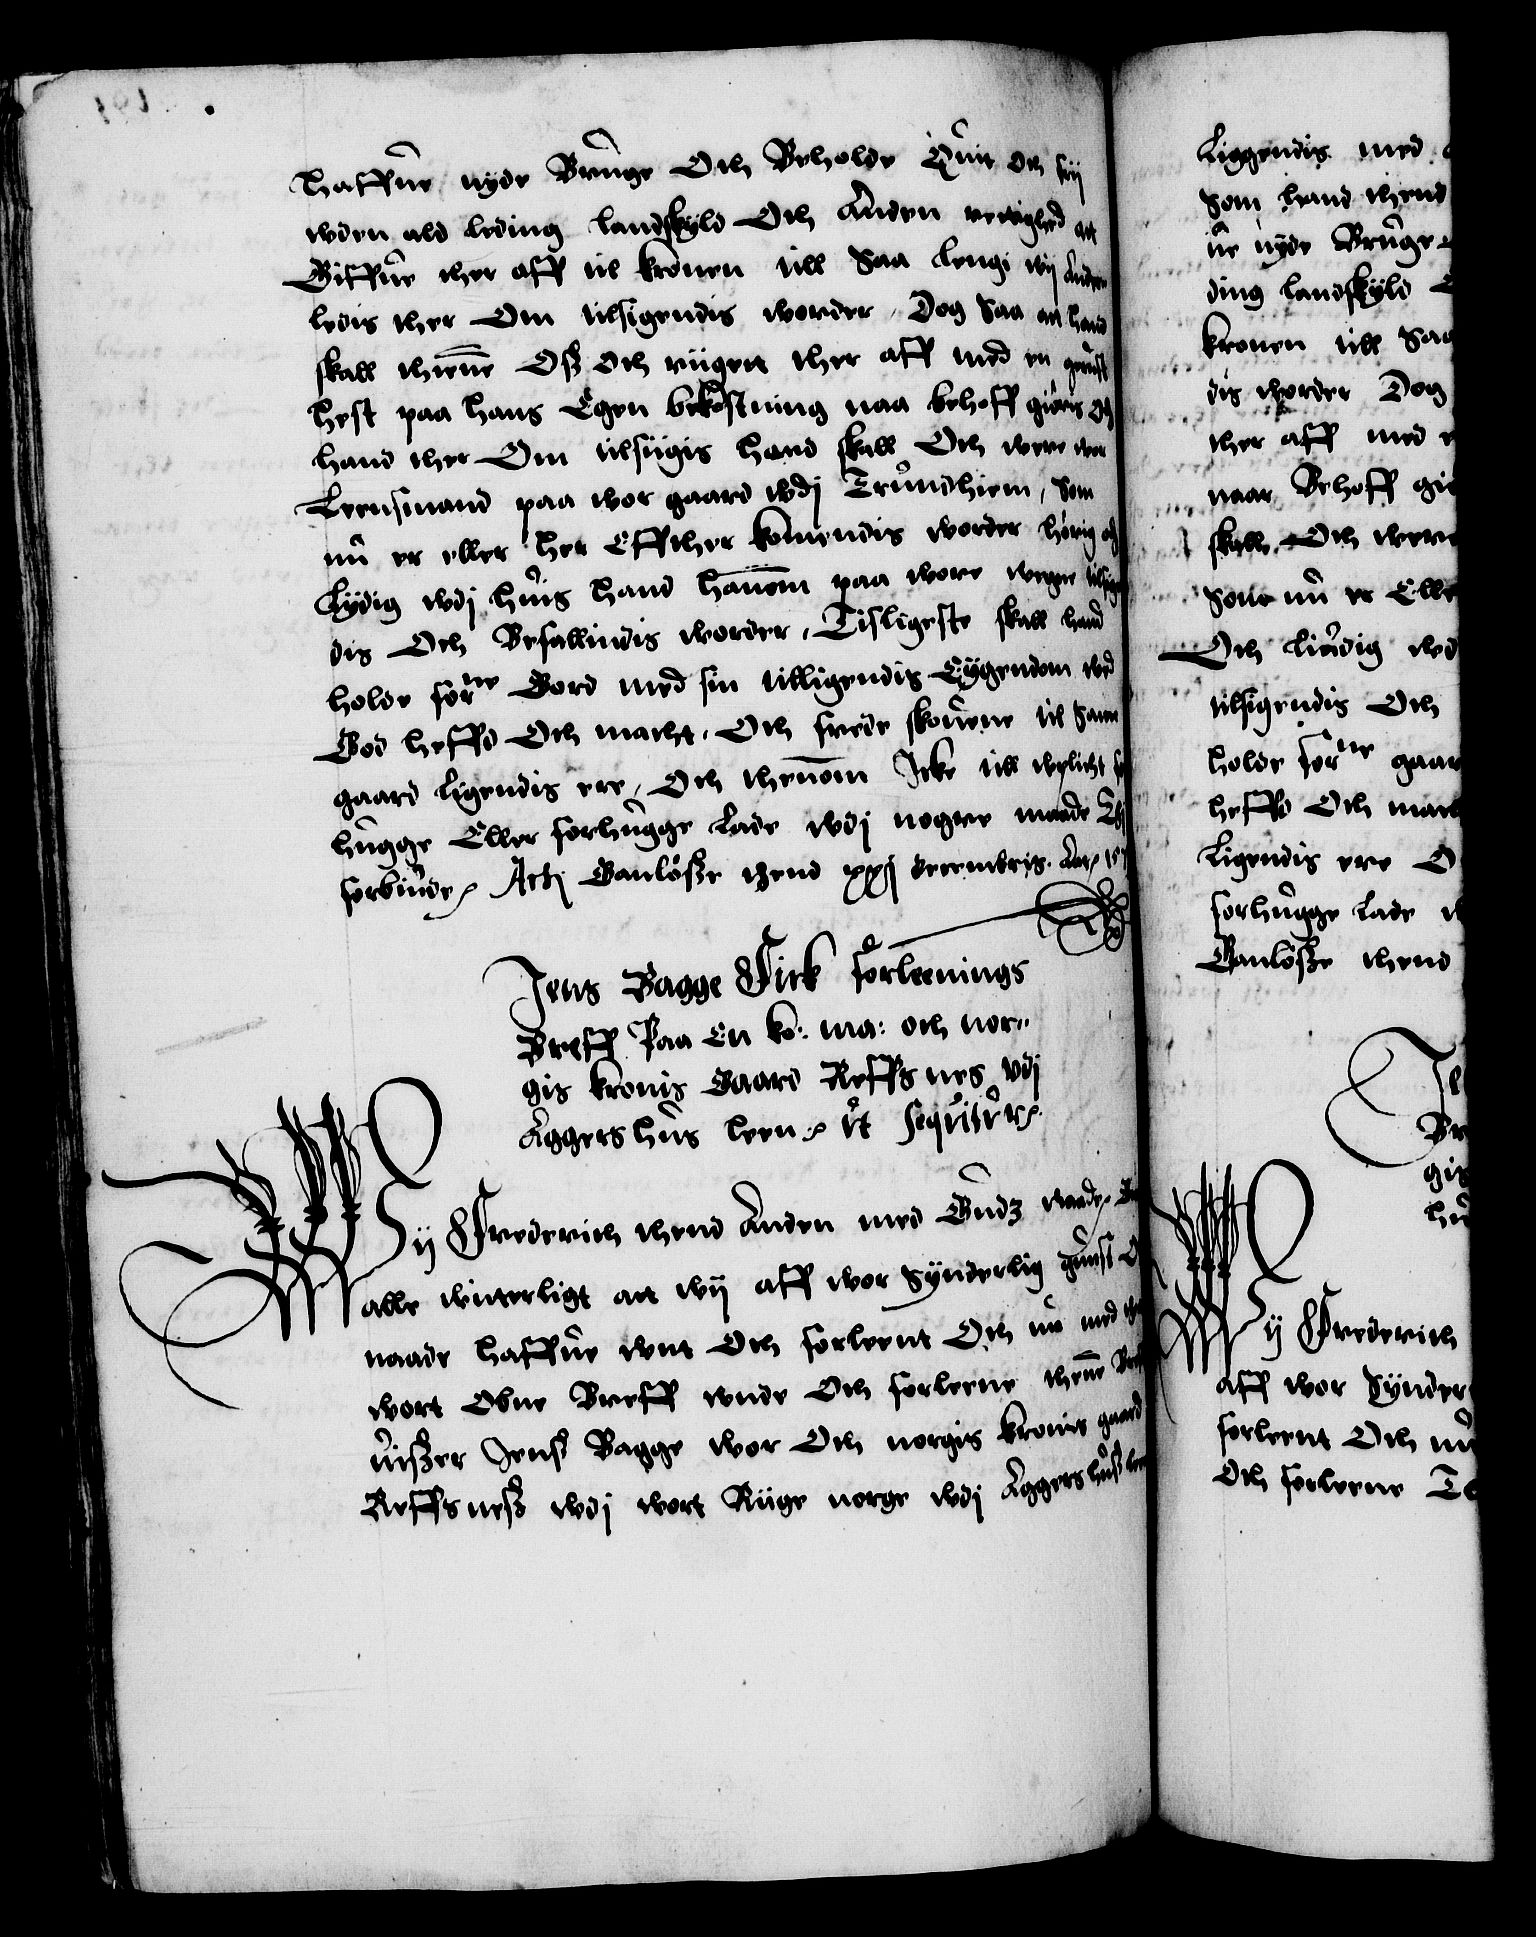 haffue nyde Bruge Och Beholde Quit och frij
wden ald leding landskyld Och Anden rettighed att
Giffue ther aff til kronen till Saa lengi wijAnder
ledis ther Om tilsigendis worder, Dog Saa att hand
skall thiene Osz och riiget ther aff med en gerust
hest paa hans Egen bekostning naa behoff giøris Och
hand ther Om tilsiigis hand skall Och were wor
Leensmand paa wor gaard wdj Trundhiem, Som
nu er eller her Effther komendis worder hørig och
Lydig wdj huis hand hanom paa wore wegne tilsigen
dis Och Befallindis worder, Tisligeste skall hand
holde for:ne Gord med sin tilligendis Eygendom wed
God heffd Och macht, Och frede skouene til Samme
gaard ligendis ere, Och thenom Icke till wplicht
hugge Eller forhugge lade wdj nogre maade
forbiude, Actj Ganløsze thend xxj decembris. Aar
Jens Bagge Fick forleenings
Breff Paa En ko: ma: och nor
gis kronis Gaard Reffsnes vdj
Aggershus leen, vt sequitur,
Wij Frederich thend Anden med Gudz naade,
alle witterligt att wij aff wor Synderlig gunst Och
naade haffue wnt Och forleent Och nu med thette
wort Obne Breff wnde Och forleene thenne Breff
uiszer Jens Bagge wor Och norgis kronis gaard
Reffsnesz wdj wort Riige norge wdj Aggershusz leen
Liggendis med
Som hand thend
ue nyde Bruge
ding landskyld
kronen till Saa
dis worder Dog
ther aff med
naar Behoff
skall Och were
Som nu er Elle
Och liudig wd
tilsigendis Och
holde for:ne gaar
heffd Och mach
Ligendis ere
forhugge lade
Ganløsze thend
Br
gis
hu
Wij Frederich
aff wor Synder
forleent Och nu
Och forleene